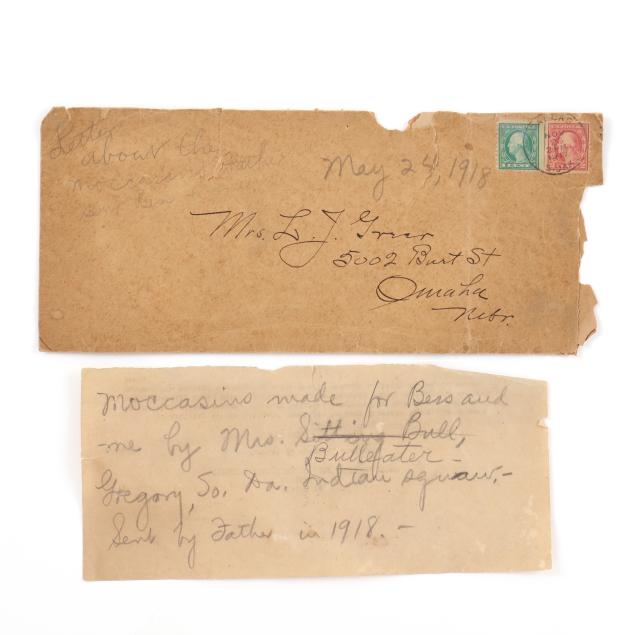 Letter
about the
moccasins
May 24, 1918
Mrs. L. J. Greer
5002 Burt St
Omaha
Nebr.
Moccasins made for Bess and
me by Mrs. Sitting Bull,
Bulleater -
Gregory, So. Da. Indian squaw, -
Sent by Father in 1918. -